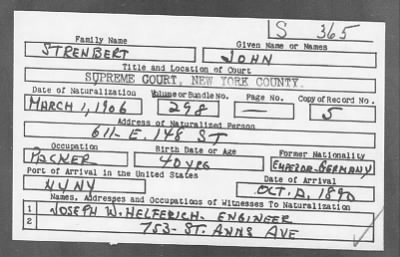 S 365
Family Name Given Name or Names
STRENBERT JOHN
Title and Location of Court
SUPREME COURT, NEW YORK COUNTY.
Date of Naturalization Volume or Bundle No. Page No. Copy of Record No.
MARCH 1, 1906 298 — 5
Address of Naturalized Person
611- E. 148 ST
Occupation Birth Date or Age Former Nationality
PACKER 40 YRS EMPEROR-GERMANY
Port of Arrival in the United States Date of Arrival
NYNY OCT. 1890
Names, Addresses and Occupations of Witnesses To Naturalization
1 JOSEPH W. HELFERICH- ENGINEER
2 753- ST. ANNS AVE